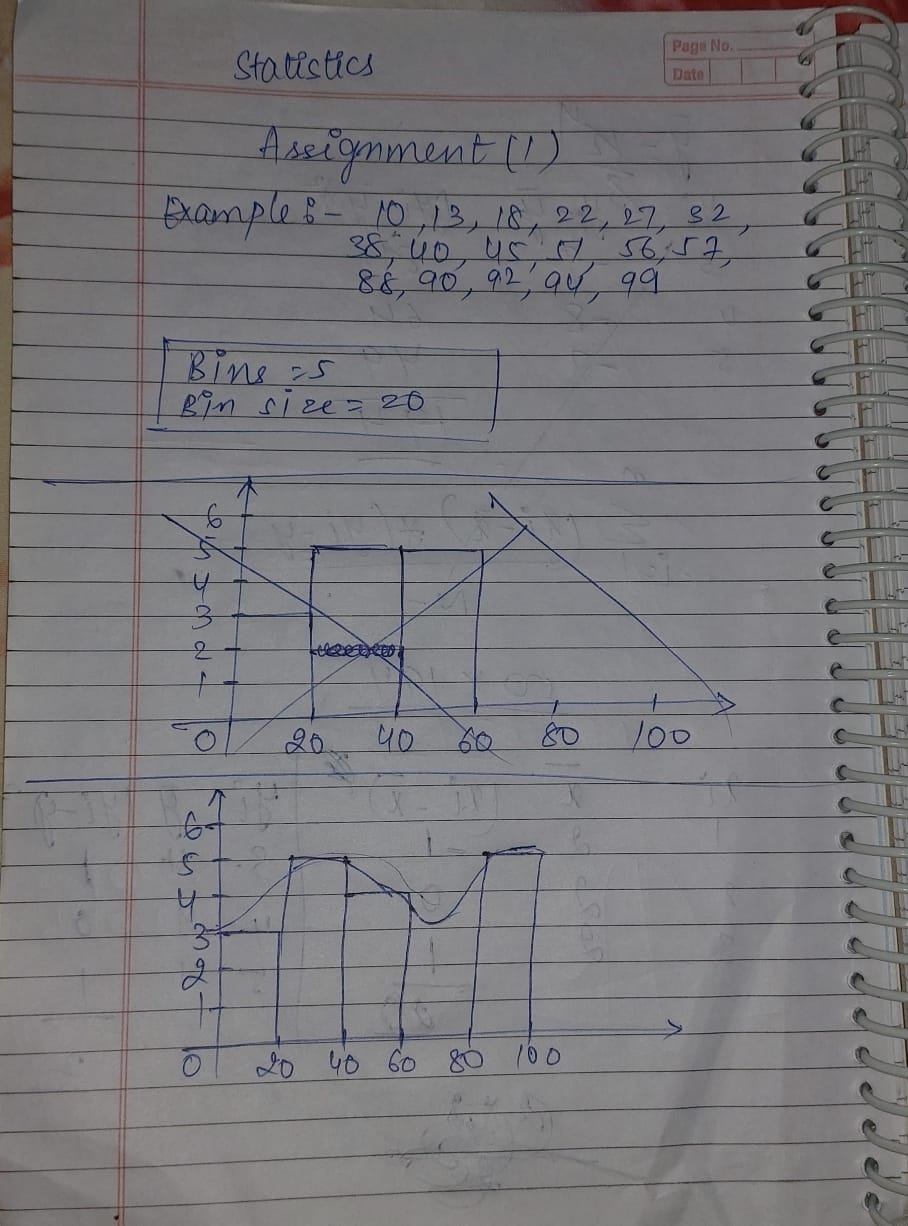 Page No.
Date
Statistics
Assignment (1)
Example :- 10, 13, 18, 22, 27, 32,
38, 40, 45, 51, 56, 57,
88, 90, 92, 94, 99
Bins = 5
Bin size = 20
6
5
4
3
2
1
0 20 40 60 80 100
6
5
4
3
2
1
0 20 40 60 80 100